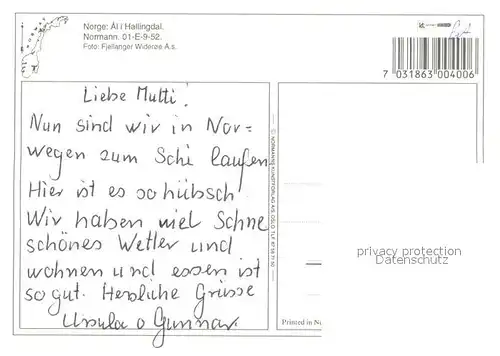 Norge: Ål i Hallingdal.
Normann. 01-E-9-52.
Foto: Fjellanger Widerøe A.s.
7 031863 004006
Liebe Mutti!
Nun sind wir in Nor=
wegen zum Schi laufen
Hier ist es so hübsch
Wir haben viel Schne
schönes Wetter und
wohnen und essen ist
so gut. Herzliche Grüsse
Ursula o Gunnar.
© NORMANNS KUNSTFORLAG A/S, OSLO TLF.
privacy protection
Datenschutz
Printed in No